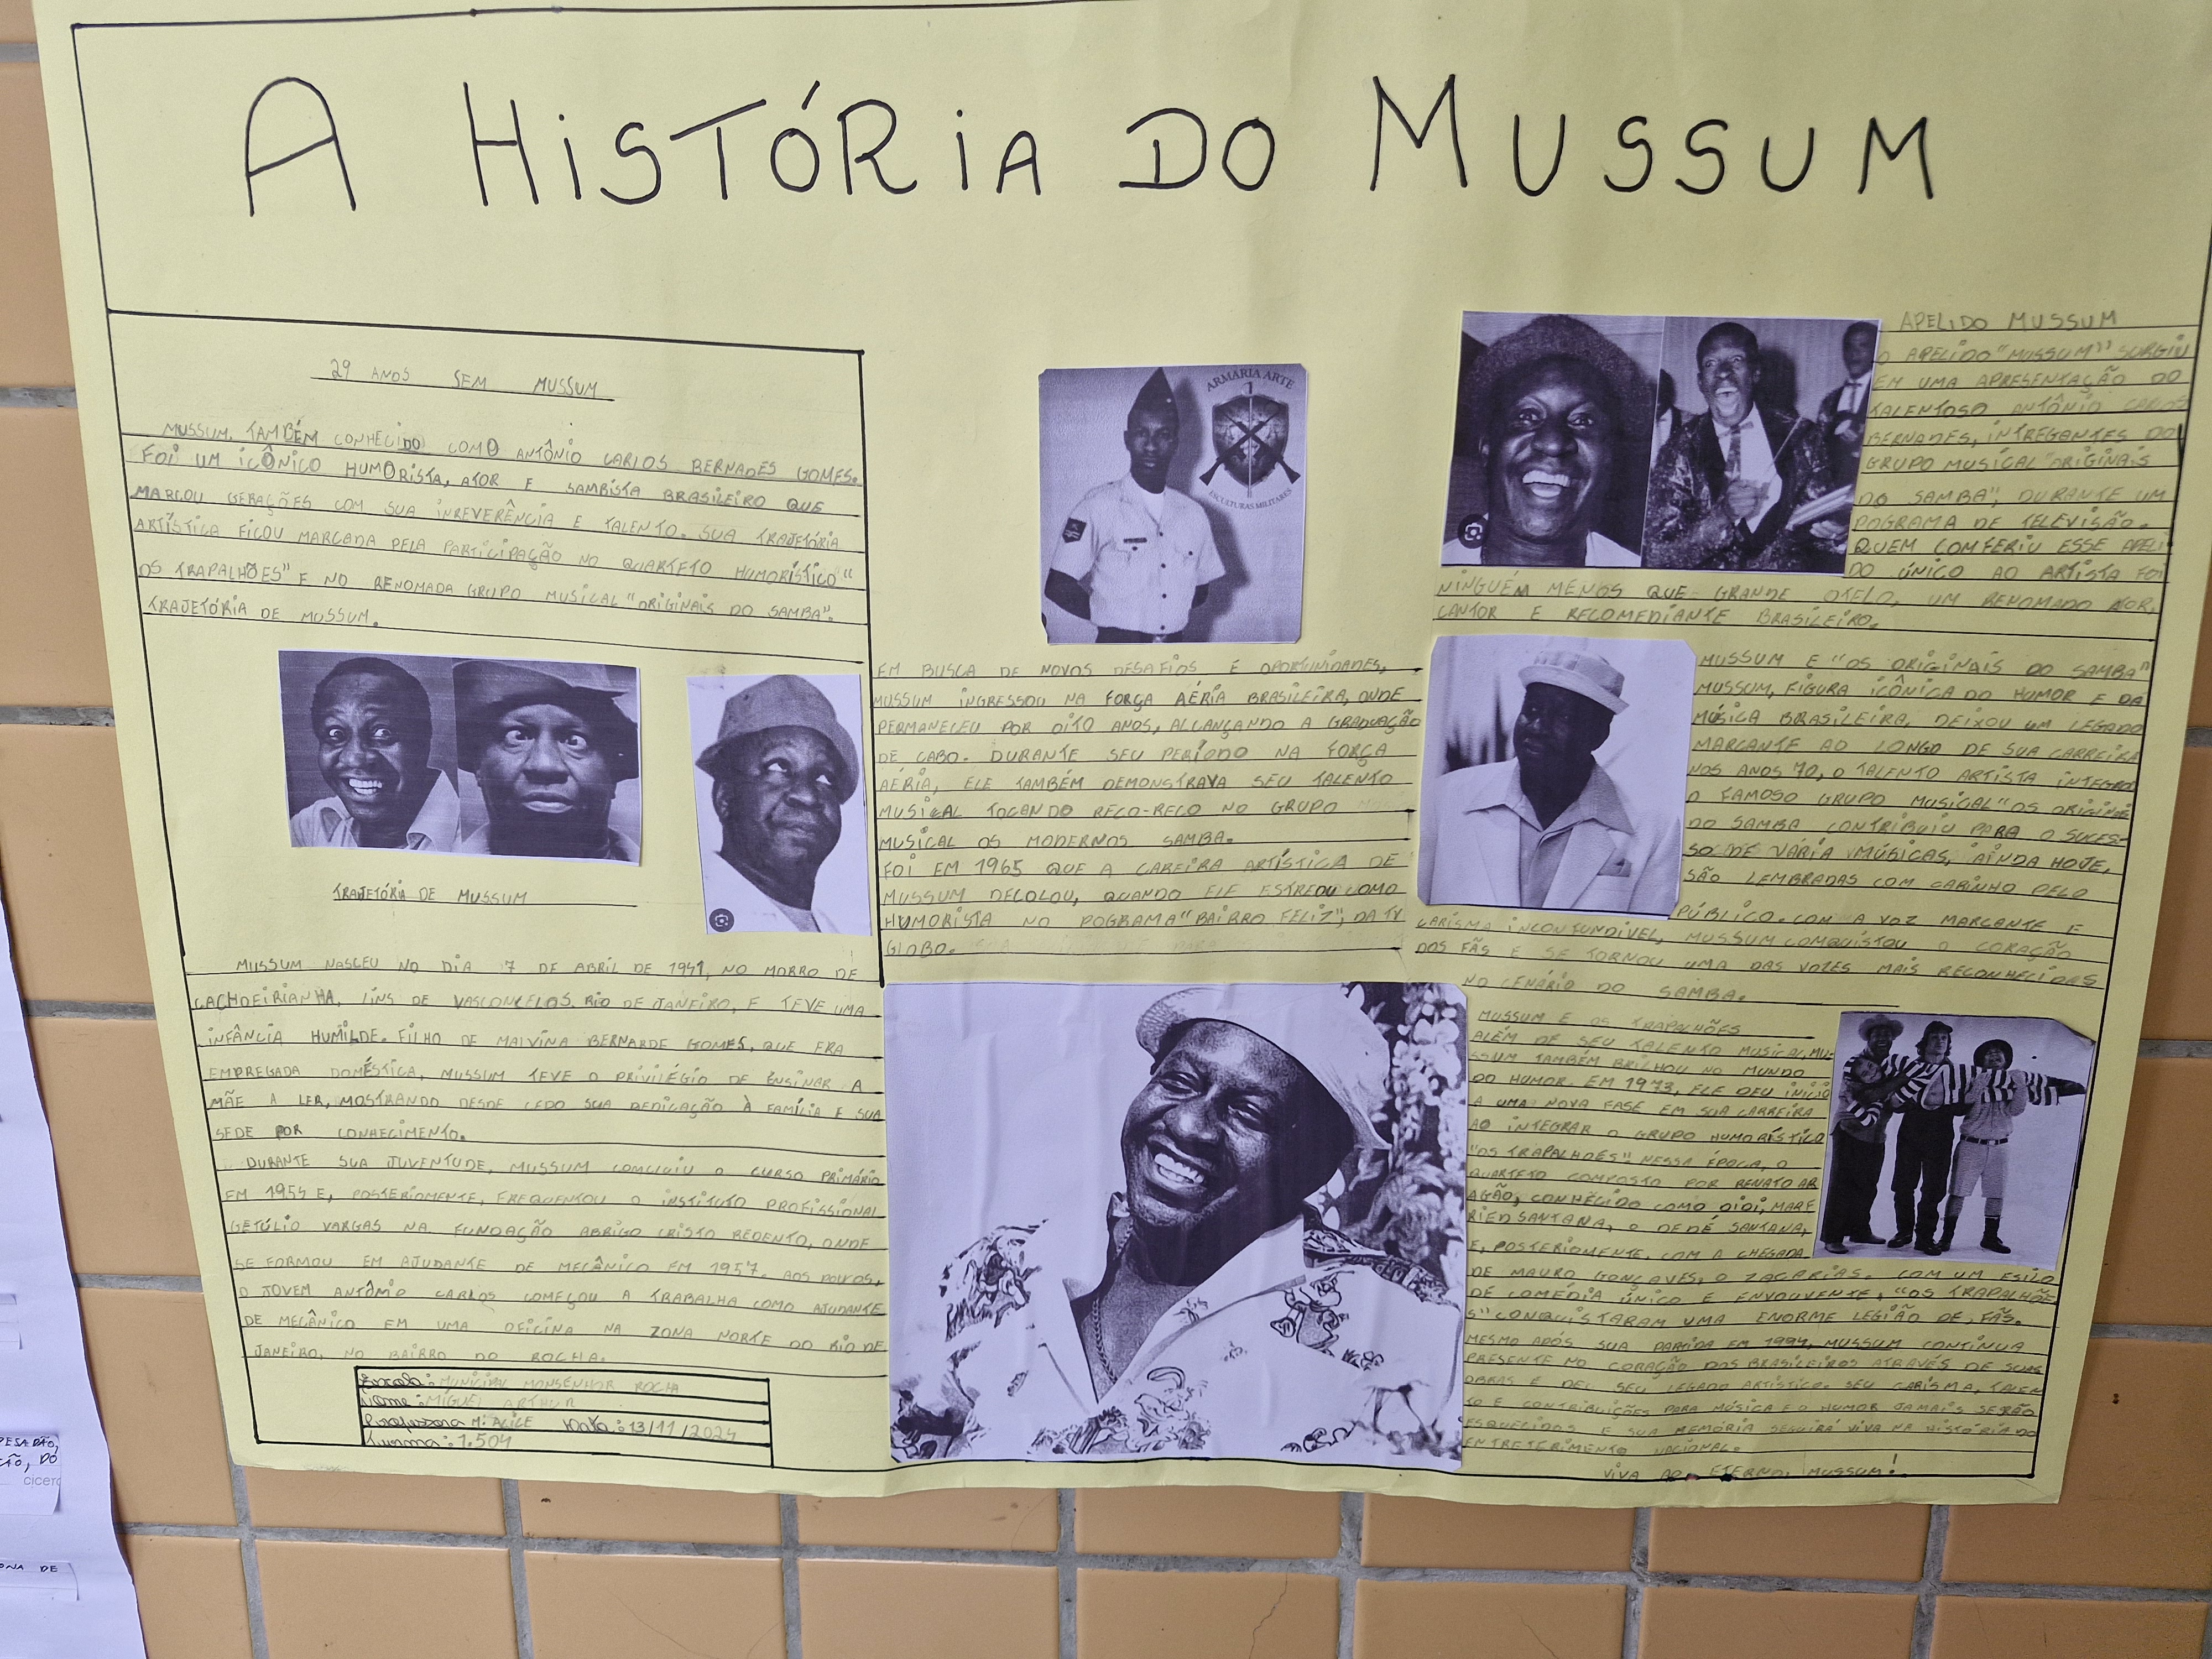 A HISTÓRIA DO MUSSUM
29 ANOS SEM MUSSUM
MUSSUM, TAMBÉM CONHECIDO COMO ANTÔNIO CARLOS BERNADES GOMES.
FOI UM ICÔNICO HUMORISTA, ATOR E SAMBISTA BRASILEIRO QUE
MARCOU GERAÇÕES COM SUA INREVERÊNCIA E TALENTO. SUA TRAJETÓRIA
ARTÍSTICA FICOU MARCADA PELA PARTICIPAÇÃO NO QUARTETO HUMORÍSTICO "
OS TRAPALHÕES" E NO RENOMADA GRUPO MUSICAL "ORIGINAIS DO SAMBA".
TRAJETÓRIA DE MUSSUM.
TRAJETÓRIA DE MUSSUM
MUSSUM NASCEU NO DIA 7 DE ABRIL DE 1941, NO MORRO DE
CACHOEIRIANHA, LINS DE VASCONCELOS. RIO DE JANEIRO. E TEVE UMA
INFÂNCIA HUMILDE. FILHO DE MALVINA BERNARDE GOMES, QUE ERA
EMPREGADA DOMÉSTICA, MUSSUM TEVE O PRIVILÉGIO DE ENSINAR A
MÃE A LER, MOSTRANDO DESDE CEDO SUA DEDICAÇÃO À FAMÍLIA E SUA
SEDE POR CONHECIMENTO.
DURANTE SUA JUVENTUDE, MUSSUM CONCLUIU O CURSO PRIMÁRIO
EM 1954 E, POSTERIOMENTE, FREQUENTOU O INSTITUTO PROFISSIONAL
GETÚLIO VARGAS NA FUNDAÇÃO ABRIGO CRISTO REDENTO, ONDE
SE FORMOU EM AJUDANTE DE MECÂNICO EM 1957. AOS POUCOS,
O JOVEM ANTÔNIO CARLOS COMEÇOU A TRABALHA COMO AJUDANTE
DE MECÂNICO EM UMA OFICINA NA ZONA NORTE DO RIO DE
JANEIRO, NO BAIRRO DO ROCHA.
Escola: MUNICIPAL MONSENHOR ROCHA
Nome: MIGUEL ARTHUR
Professora M. ALICE Data: 13/11/2024
Turma: 1.504
ARMARIA ARTE
ESCULTURAS MILITARES
EM BUSCA DE NOVOS DESAFIOS E OPORTUNIDADES,
MUSSUM INGRESSOU NA FORÇA AÉRIA BRASILEIRA, ONDE
PERMANECEU POR OITO ANOS, ALCANÇANDO A GRADUAÇÃO
DE CABO. DURANTE SEU PERÍODO NA FORÇA
AÉRIA, ELE TAMBÉM DEMONSTRAVA SEU TALENTO
MUSICAL TOCANDO RECO-RECO NO GRUPO
MUSICAL OS MODERNOS SAMBA.
FOI EM 1965 QUE A CAREIRA ARTÍSTICA DE
MUSSUM DECOLOU, QUANDO ELE ESTREOU COMO
HUMORISTA NO POGRAMA "BAIRRO FELIZ", DA TV
GLOBO.
APELIDO MUSSUM
O APELIDO "MUSSUM" SURGIU
EM UMA APRESENTAÇÃO DO
TALENTOSO ANTÔNIO CARLOS
BERNADES, INTREGANTES DO
GRUPO MUSICAL "ORIGINAIS
DO SAMBA", DURANTE UM
POGRAMA DE TELEVISÃO.
QUEM COMFERIU ESSE APELI
DO ÚNICO AO ARTISTA FOI
NINGUÉM MENOS QUE GRANDE OTELO, UM RENOMADO ATOR,
CANTOR E RECOMEDIANTE BRASILEIRO.
MUSSUM E "OS ORIGINAIS DO SAMBA"
MUSSUM, FIGURA ICÔNICA DO HUMOR E DA
MÚSICA BRASILEIRA, DEIXOU UM LEGADO
MARCANTE AO LONGO DE SUA CARREIRA
NOS ANOS 70, O TALENTO ARTISTA INTEGROU
O FAMOSO GRUPO MUSICAL "OS ORIGINAIS
DO SAMBA CONTRIBUIU PARA O SUCES-
SO DE VÁRIA MÚSICAS, AINDA HOJE,
SÃO LEMBRADAS COM CARINHO PELO
PÚBLICO. COM A VOZ MARCANTE E
CARISMA INCONFUNDÍVEL, MUSSUM CONQUISTOU O CORAÇÃO
DOS FÃS E SE TORNOU UMA DAS VOZES MAIS RECONHECIDAS
NO CENÁRIO DO SAMBA.
MUSSUM E OS TRAPALHÕES
ALÉM DE SEU TALENTO MUSICAL, MU-
SSUM TAMBÉM BRILHOU NO MUNDO
DO HUMOR. EM 1973, ELE DEU INÍCIO
A UMA NOVA FASE EM SUA CARREIRA
AO INTEGRAR O GRUPO HUMORÍSTICO
"OS TRAPALHÕES" NESSA ÉPOCA, O
QUARTETO COMPOSTO POR RENATO AR
AGÃO, CONHECIDO COMO DIDI, MANF
RIED SANTANA, O DEDÉ SANTANA,
E, POSTERIOMENTE, COM A CHEGADA
DE MAURO GONÇALVES, O ZACARIAS. COM UM ESTILO
DE COMÉDIA ÚNICO E ENVOUVENTE, "OS TRAPALHÕE
S" CONQUISTARAM UMA ENORME LEGIÃO DE FÃS.
MESMO APÓS SUA PARTIDA EM 1994, MUSSUM CONTINUA
PRESENTE NO CORAÇÃO DOS BRASILEIROS ATRAVÉS DE SUAS
OBRAS E DEL SEU LEGADO ARTÍSTICO. SEU CARISMA, TALEN
TO E CONTRIBUIÇÕES PARA MÚSICA E O HUMOR JAMAIS SERÃO
ESQUECIDOS E SUA MEMÓRIA SEGUIRÁ VIVA NA HISTÓRIA DO
ENTRETERIMENTO NACIONAL.
VIVA AO ETERNO MUSSUM!
PESADÃO,
ÃO, DO
cicero
ONA DE